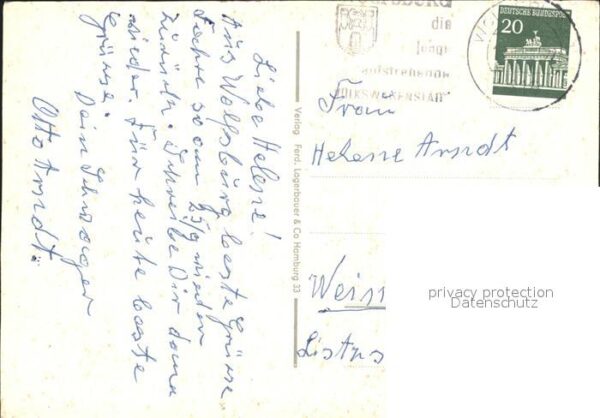 Liebe Helene!
Aus Wolfsburg beste Grüsse
Fahre so am 25/9 wieder
zurück. Schreibe Dir dann
wieder. Für heute beste
Grüsse. Dein Schwager
Otto Arndt.
Verlag Ferd. Lagerbauer & Co Hamburg 33
die
junge
aufstrebende
VOLKSWAGENSTADT
DEUTSCHE BUNDESPOST
20
Frau
Helene Arndt
Wein
privacy protection
Datenschutz